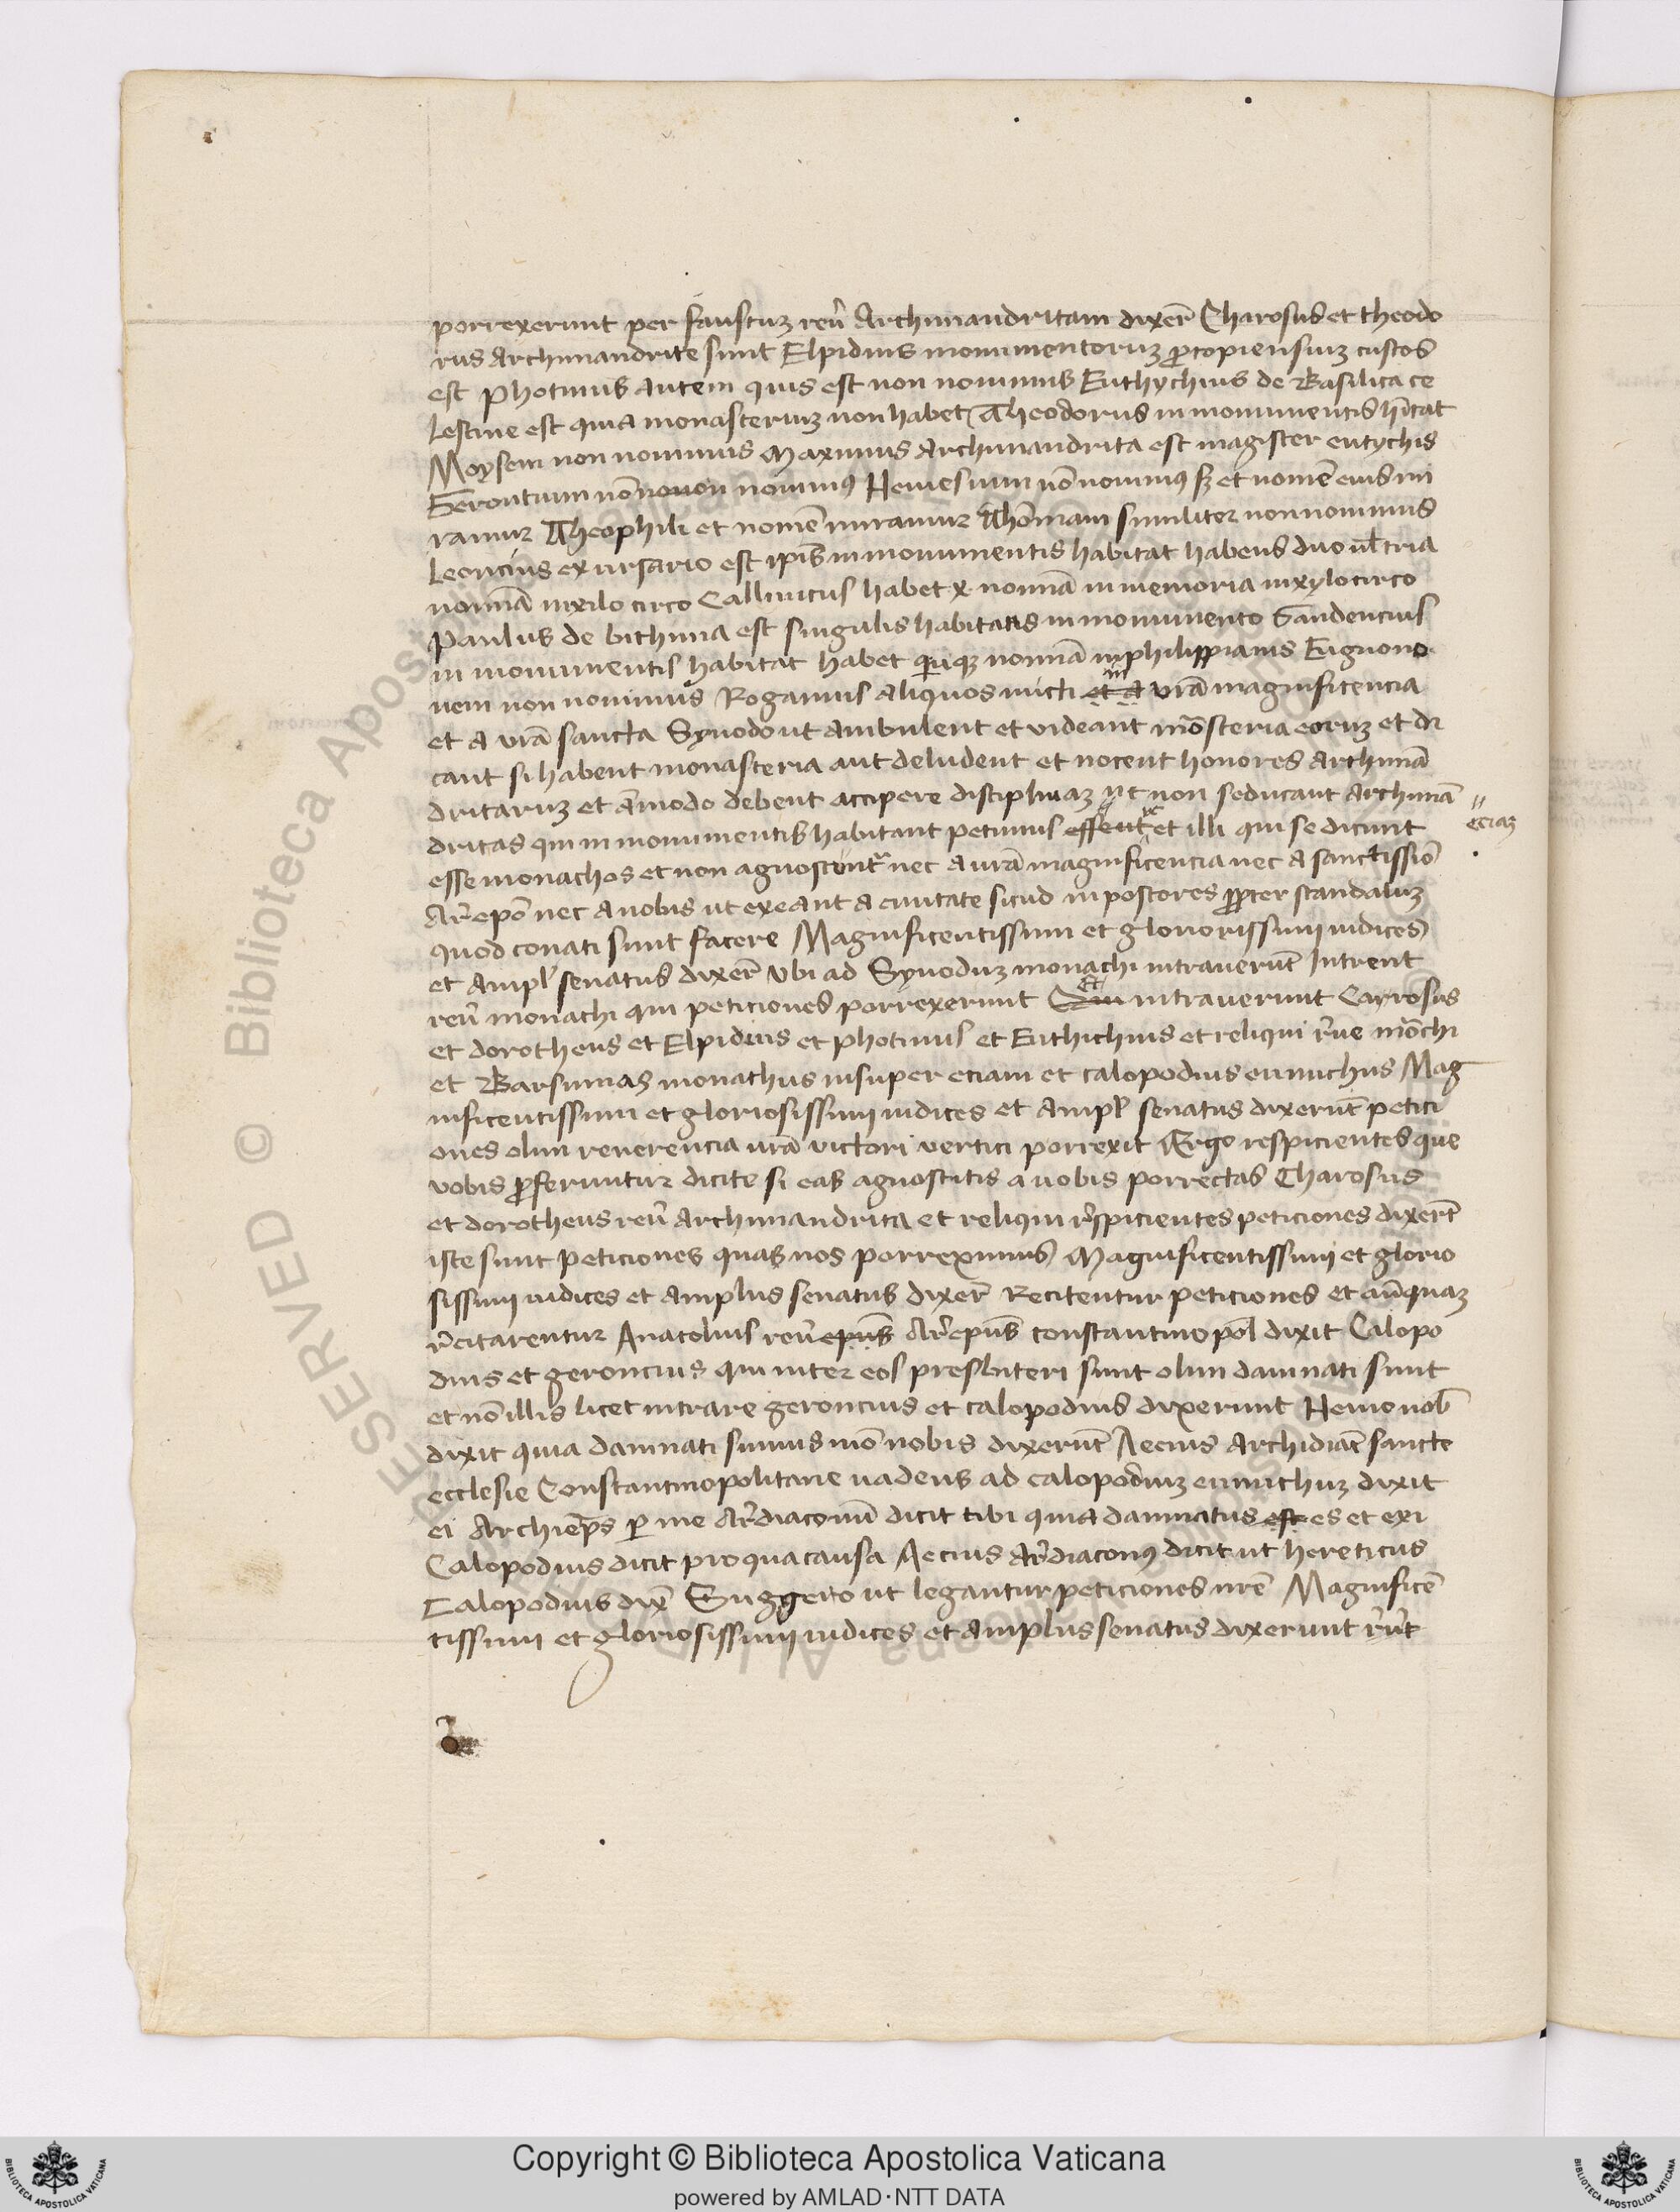 porrexerunt per faustuz reuͥ Archimandritam dixer̄ Charosus et theodo
rus Archimandrite sunt Elpidius monumentoruz ꝓcopiensiuz custos
est Photinus autem quis est non nouimus Euthychius de Basilica ce
lestine est quia monasteriuz non habet Theodorus in monumentis hītat
Moysem non nouimus Maximus Archimandrita est magister eutychis
Gerontium nō nouon nouimꝰ Nemesium nō nouimꝰ sꝫ et nomē eius mi
ramur Theophili et nomē miramur Thōmam similiter non nouimus
Leoncius ex ursario est ip̄is in monumentis habitat habens duo ul̄ tria
nomīa in xilo circo Callinicus habet x nomīa in memoria in xylocirco
Paulus de bithinia est singulis habitans in monumento Gaudencius
in monumentis habitat habet quinqꝫ nomīa in philippianis Eugnomo
nem non nouimus Rogamus aliquos micti et a in vr̄a magnificencia
et a vr̄a sancta Synodo ut ambulent et videant mōsteria eoruz et di
cant si habent monasteria aut deludent et nocent honores Archimā
dritaruz et āmodo debent accipere disciplinaz ut non seducant Archimā
dritas qui in monumentis habitant petimus essent et illi qui se dicunt
ecciaz
esse monachos et non agnoscunt᷑ nec a vr̄a magnificencia nec a sanctissio᷑
Ar̄epō nec a nobis ut exeant a ciuitate sicud inpostores ꝓpter scandaluz
quod conati sunt facere Magnificentissimi et gloriorissimi iudices
et ampl̄ senatus dixer̄ Vbi ad Synoduz monachi intrauerūt Intrent
reuͥ monachi qui peticiones porrexerunt Et intrauerunt Carrosus
et dorotheus et Elpidius et photinus et Euthichius et reliqui r̄ue mōchi
et Barsumas monachus insuper eciam et calopodius eunuchus Mag
nificentissimi et gloriosissimi iudices et ampl̄ senatus dixerūt petici
ones olim reuerencia vr̄a victori vertici porrexit Ergo respicientes que
vobis ꝓferuntur dicite si eas agnoscitis a uobis porrectas Charosus
et dorotheus reuͥ Archimandrita et reliqui r̄spicientes peticiones dixer̄t
iste sunt peticiones quas nos porreximus Magnificentissimi et glorio
sissimi iudices et amplus senatus dixer̄ Recitentur peticiones et an̄quaz
r̄citarentur Anatolius reuͥ ep̄us Ar̄ep̄us constantinopol̄ dixit Calopo
dius et geroncius qui inter eos presbiteri sunt olim damnati sunt
et nō illis licet intrare geroncius et calopodius dixerunt Nemo nob̄
dixit quia damnati sumus mō nobis dixerūt Aecius Archidiac̄ sancte
ecclesie Constantinopolitane uadens ad calopodiuz eunuchuz dixit
ei Archiep̄s ꝑ me Ar̄diaconū dicit tibi quia damnatus est es et exi
Calopodius dicit pro qua causa Aecius Ar̄diaconꝰ dicit ut hereticus
Calopodius dix̄ Suggero ut legantur peticiones nr̄e Magnificē
tissimi et gloriosissimi iudices et amplus senatus dixerunt r̄ur̄t
RESERVED © Biblioteca Apos
Copyright © Biblioteca Apostolica Vaticana
powered by AMLAD·NTT DATA
BIBLIOTECA APOSTOLICA VATICANA
BIBLIOTECA APOSTOLICA VATICANA